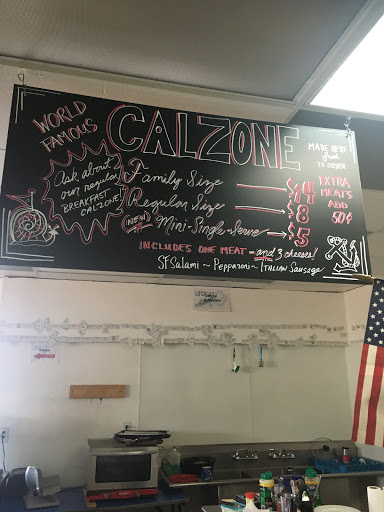 WORLD
FAMOUS
CALZONE
MADE HERE
fresh
TO ORDER
Ask about
our regular
BREAKFAST
CALZONE!
Family Size — $14
Regular Size — $8
(NEW) Mini-Single-Serve — $5
EXTRA
MEATS
ADD
50¢
INCLUDES ONE MEAT - and 3 cheeses!
SF Salami ~ Pepparoni ~ Italian Sausage